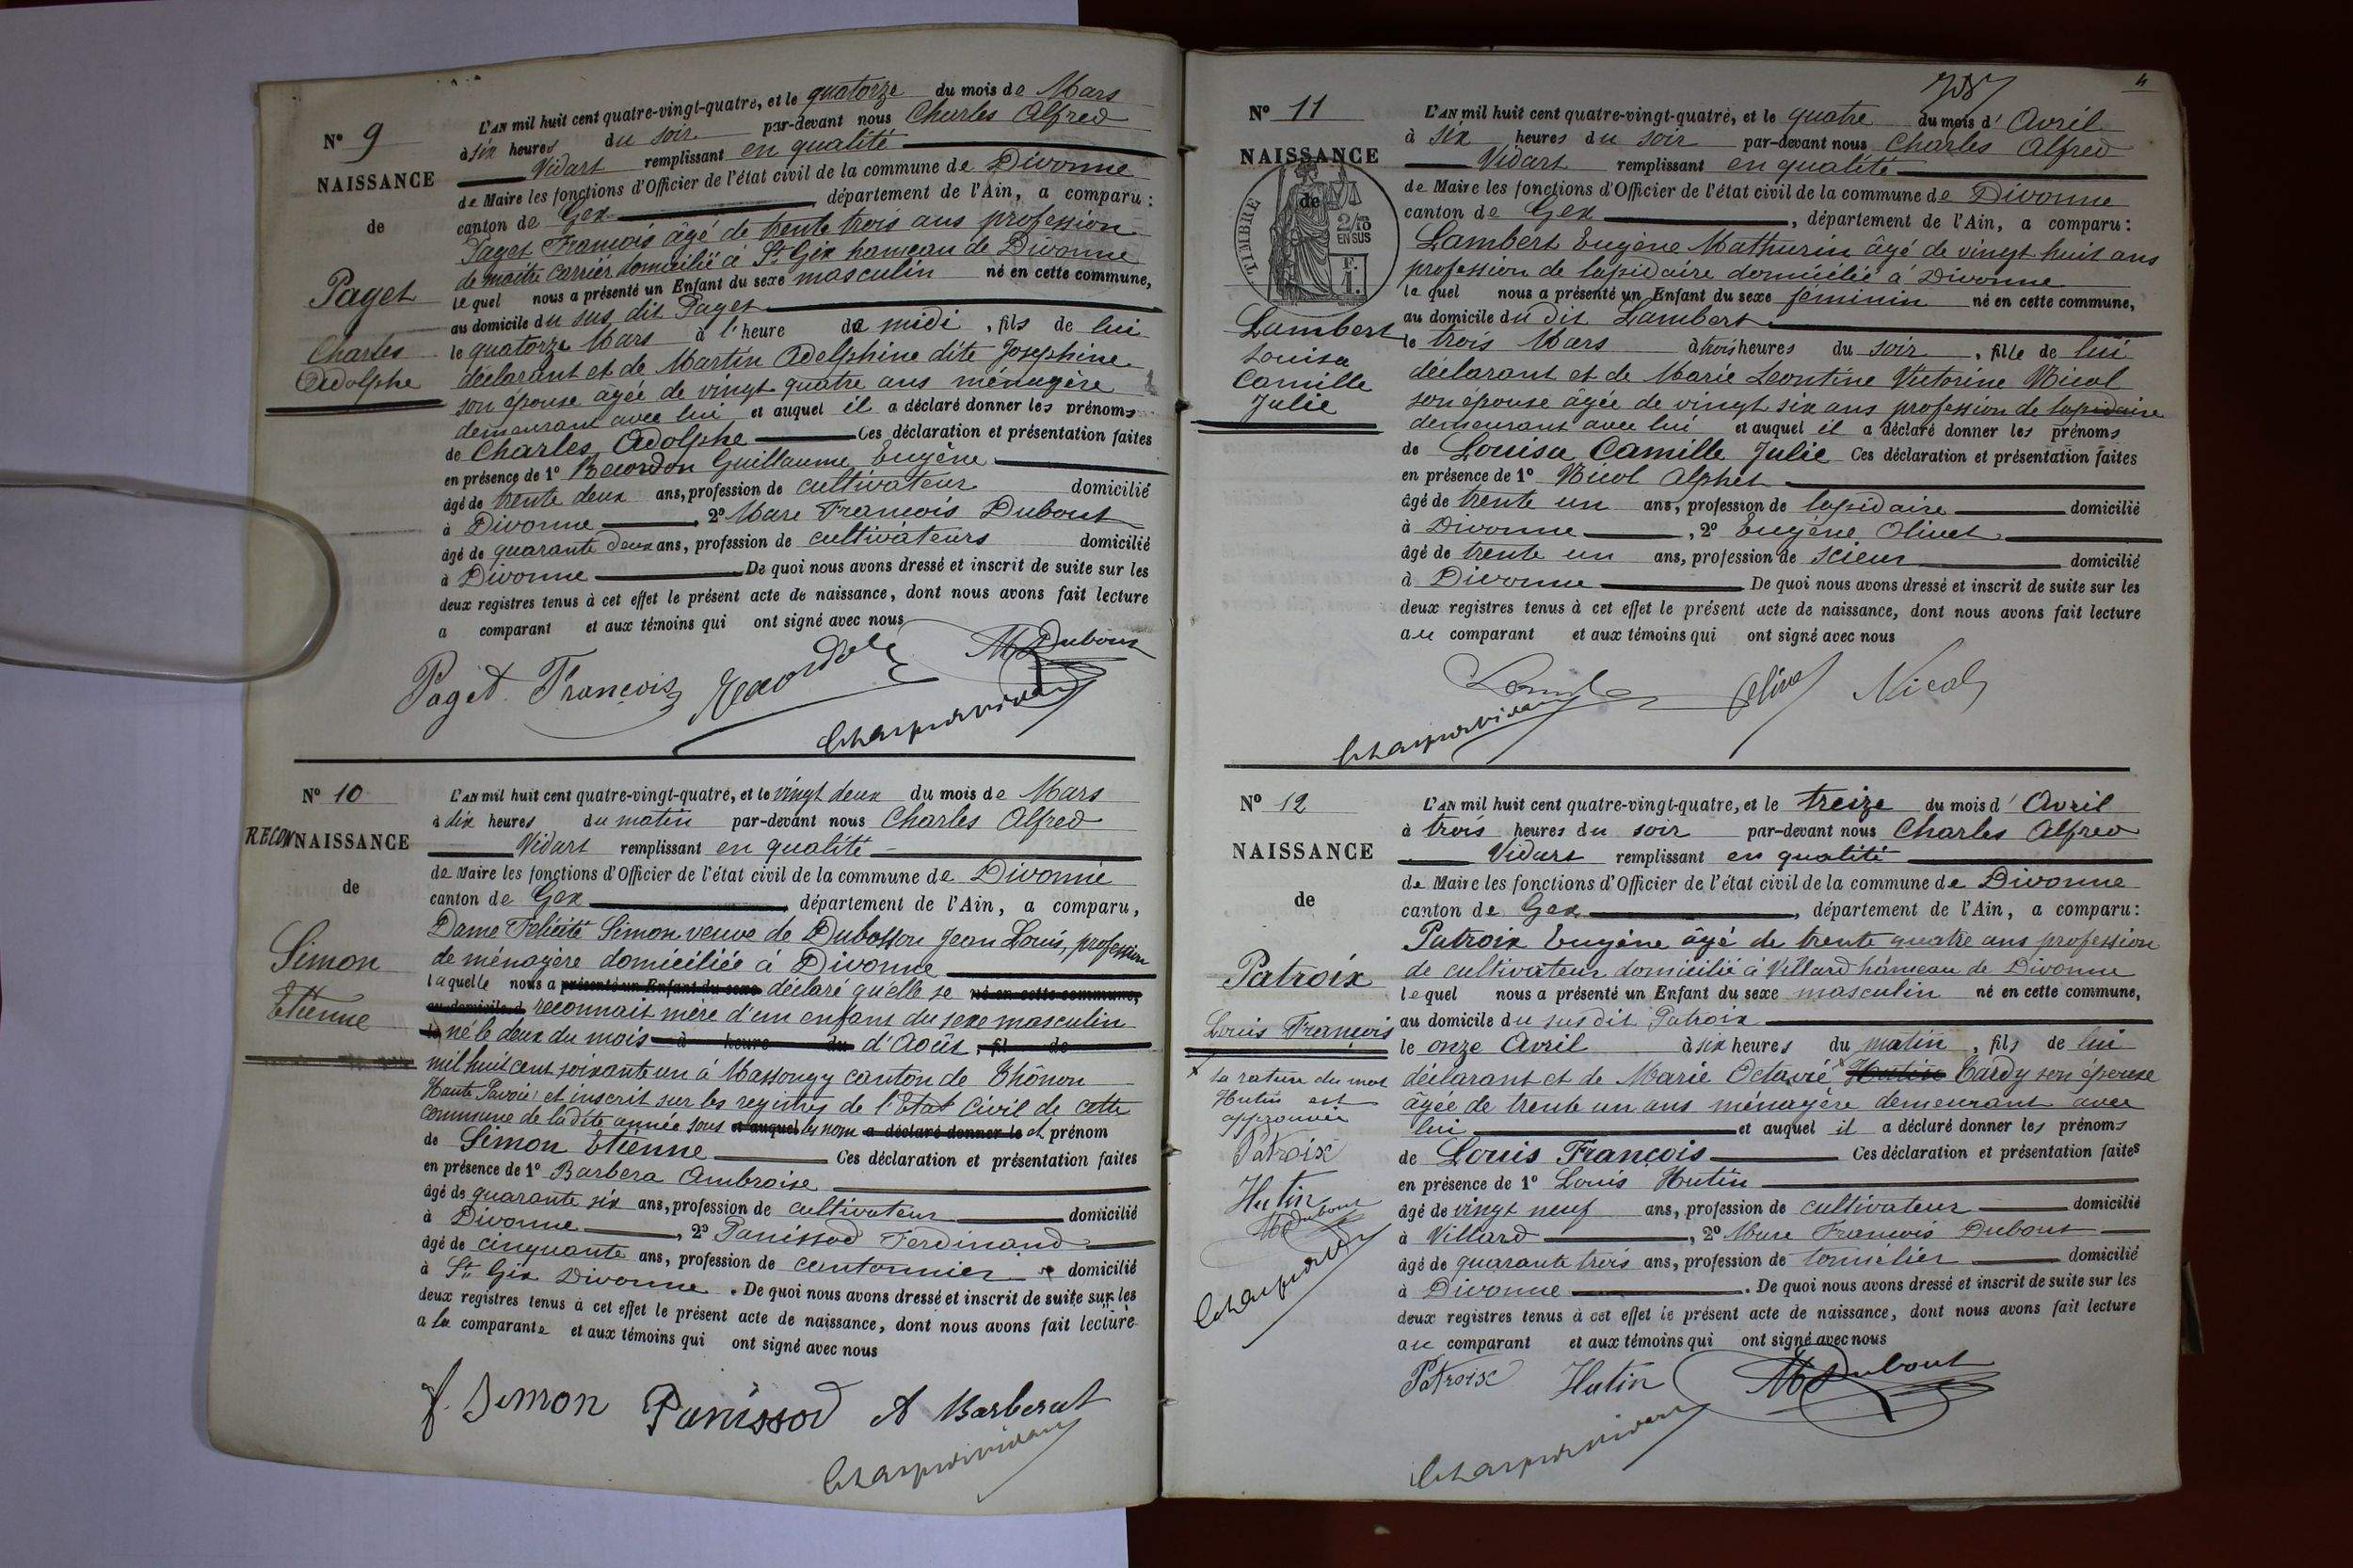 Nº 9
NAISSANCE
de
Paget
Charles
Adolphe
L'AN mil huit cent quatre-vingt-quatre, et le quatorze du mois de Mars
à six heures du soir par-devant nous Charles Alfred
Vidart remplissant en qualité
de Maire les fonctions d'Officier de l'état civil de la commune de Divonne
canton de Gex, département de l'Ain, a comparu :
Paget François âgé de trente trois ans profession
de maître carrier domicilié à St Gix hameau de Divonne
lequel nous a présenté un Enfant du sexe masculin né en cette commune,
au domicile du sus dit Paget
le quatorze Mars à l'heure de midi, fils de lui
déclarant et de Martin Adelphine dite Josephine
son épouse âgée de vingt quatre ans ménagère
demeurant avec lui et auquel il a déclaré donner les prénoms
de Charles Adolphe Ces déclaration et présentation faites
en présence de 1º Recordon Guillaume Eugène
âgé de trente deux ans, profession de cultivateur domicilié
à Divonne, 2º Marc François Dubout
âgé de quarante deux ans, profession de cultivateurs domicilié
à Divonne De quoi nous avons dressé et inscrit de suite sur les
deux registres tenus à cet effet le présent acte de naissance, dont nous avons fait lecture
a comparant et aux témoins qui ont signé avec nous
Paget François M Dubout
Nº 10
RECONNAISSANCE
de
Simon
Etienne
L'AN mil huit cent quatre-vingt-quatre, et le vingt deux du mois de Mars
à dix heures du matin par-devant nous Charles Alfred
Vidart remplissant en qualité
de Maire les fonctions d'Officier de l'état civil de la commune de Divonne
canton de Gex, département de l'Ain, a comparu,
Dame Félicité Simon veuve de Dubosson Jean Louis, profession
de ménagère domiciliée à Divonne
laquelle nous a présenté un Enfant du sexe déclaré qu'elle se né en cette commune,
au domicile d reconnait mère d'un enfant du sexe masculin
le né le deux du mois à heure du d'Août, fil de
mil huit cent soixante un à Massongy canton de Thônon
Haute Savoie et inscrit sur les registres de l'Etat Civil de cette
commune de la dite année sous et auquel les nom a déclaré donner le et prénom
de Simon Etienne Ces déclaration et présentation faites
en présence de 1º Barbera Ambroise
âgé de quarante six ans, profession de cultivateur domicilié
à Divonne, 2º Panissod Ferdinand
âgé de cinquante ans, profession de cantonnier domicilié
à St Gix Divonne. De quoi nous avons dressé et inscrit de suite sur les
deux registres tenus à cet effet le présent acte de naissance, dont nous avons fait lecture
a la comparante et aux témoins qui ont signé avec nous
f. Simon Panissod A Barberat
4
Nº 11
NAISSANCE
de
TIMBRE
2/10
EN SUS
F.
1.
Lambert
Louisa
Camille
Julie
L'AN mil huit cent quatre-vingt-quatre, et le quatre du mois d'Avril
à six heures du soir par-devant nous Charles Alfred
Vidart remplissant en qualité
de Maire les fonctions d'Officier de l'état civil de la commune de Divonne
canton de Gex, département de l'Ain, a comparu :
Lambert Eugène Mathurin âgé de vingt huit ans
profession de lapidaire domicilié à Divonne
lequel nous a présenté un Enfant du sexe féminin né en cette commune,
au domicile du dit Lambert
le trois Mars à trois heures du soir, fille de lui
déclarant et de Marie Leontine Victorine Nicol
son épouse âgée de vingt six ans profession de lapidaire
demeurant avec lui et auquel il a déclaré donner les prénoms
de Louisa Camille Julie Ces déclaration et présentation faites
en présence de 1º Nicol Alphet
âgé de trente un ans, profession de lapidaire domicilié
à Divonne, 2º Eugène Olivet
âgé de trente un ans, profession de scieur domicilié
à Divonne De quoi nous avons dressé et inscrit de suite sur les
deux registres tenus à cet effet le présent acte de naissance, dont nous avons fait lecture
au comparant et aux témoins qui ont signé avec nous
Olivet Nicol
Nº 12
NAISSANCE
de
Patroix
Louis François
x la rature du mot
Hutin est
approuvée
Patroix
Hutin
M Dubout
L'AN mil huit cent quatre-vingt-quatre, et le treize du mois d'Avril
à trois heures du soir par-devant nous Charles Alfred
Vidart remplissant en qualité
de Maire les fonctions d'Officier de l'état civil de la commune de Divonne
canton de Gex, département de l'Ain, a comparu :
Patroix Eugène âgé de trente quatre ans profession
de cultivateur domicilié à Villard hameau de Divonne
lequel nous a présenté un Enfant du sexe masculin né en cette commune,
au domicile du susdit Patroix
le onze Avril à six heures du matin, fils de lui
déclarant et de Marie Octavie x Hutin Tardy son épouse
âgée de trente un ans ménagère demeurant avec
lui et auquel il a déclaré donner les prénoms
de Louis François Ces déclaration et présentation faites
en présence de 1º Louis Hutin
âgé de vingt neuf ans, profession de cultivateur domicilié
à Villard, 2º Marc François Dubout
âgé de quarante trois ans, profession de tonnelier domicilié
à Divonne. De quoi nous avons dressé et inscrit de suite sur les
deux registres tenus à cet effet le présent acte de naissance, dont nous avons fait lecture
au comparant et aux témoins qui ont signé avec nous
Patroix Hutin M Dubout